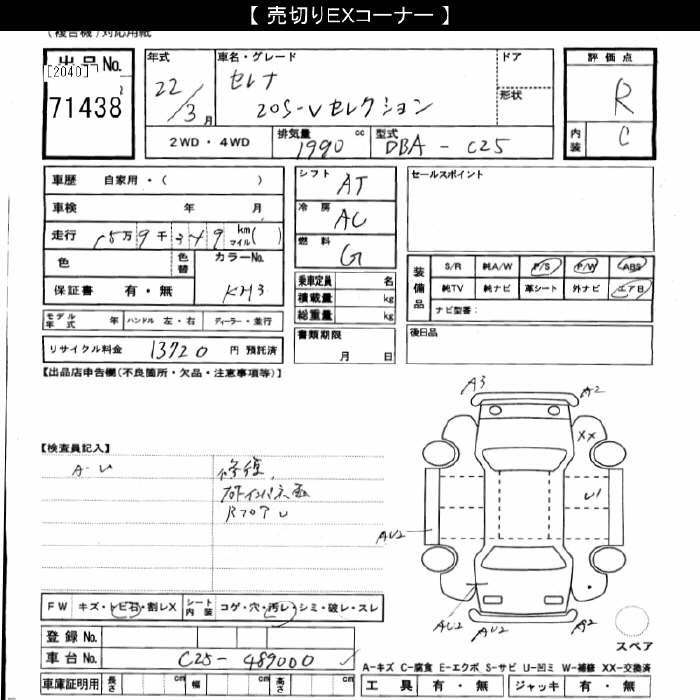 【 売切りEXコーナー 】
(複合機)対応用紙
出品No.
[2040]
71438
年式
22/3月
車名・グレード
セレナ
20S-Vセレクション
ドア
形状
評価点
R
内装
C
2WD・4WD
排気量
1990 cc
型式
DBA - C25
車歴 自家用・( )
車検 年 月
走行 15万9千349 km マイル( )
色
色替
カラーNo.
KH3
保証書 有・無
モデル年式 年
ハンドル 左・右
ディーラー・並行
リサイクル料金 13720 円 預託済
シフト AT
冷房 AC
燃料 G
乗車定員 名
積載量 kg
総重量 kg
書類期限
月 日
セールスポイント
装備品
S/R 純A/W P/S P/W ABS
純TV 純ナビ 革シート 外ナビ エアB
ナビ型番:
後日品
【出品店申告欄(不良箇所・欠品・注意事項等)】
【検査員記入】
A-U
修復
RフロアU
A3
A2
XX
U1
AU2
AU2
AU2
A2
スペア
FW キズ・トビ石・割レX
シート内装 コゲ・穴・汚レ・シミ・破レ・スレ
登録No.
車台No. C25-489000
車庫証明用 長さ cm 幅 cm 高さ cm
A-キズ C-腐食 E-エクボ S-サビ U-凹ミ W-補修 XX-交換済
工具 有・無 ジャッキ 有・無